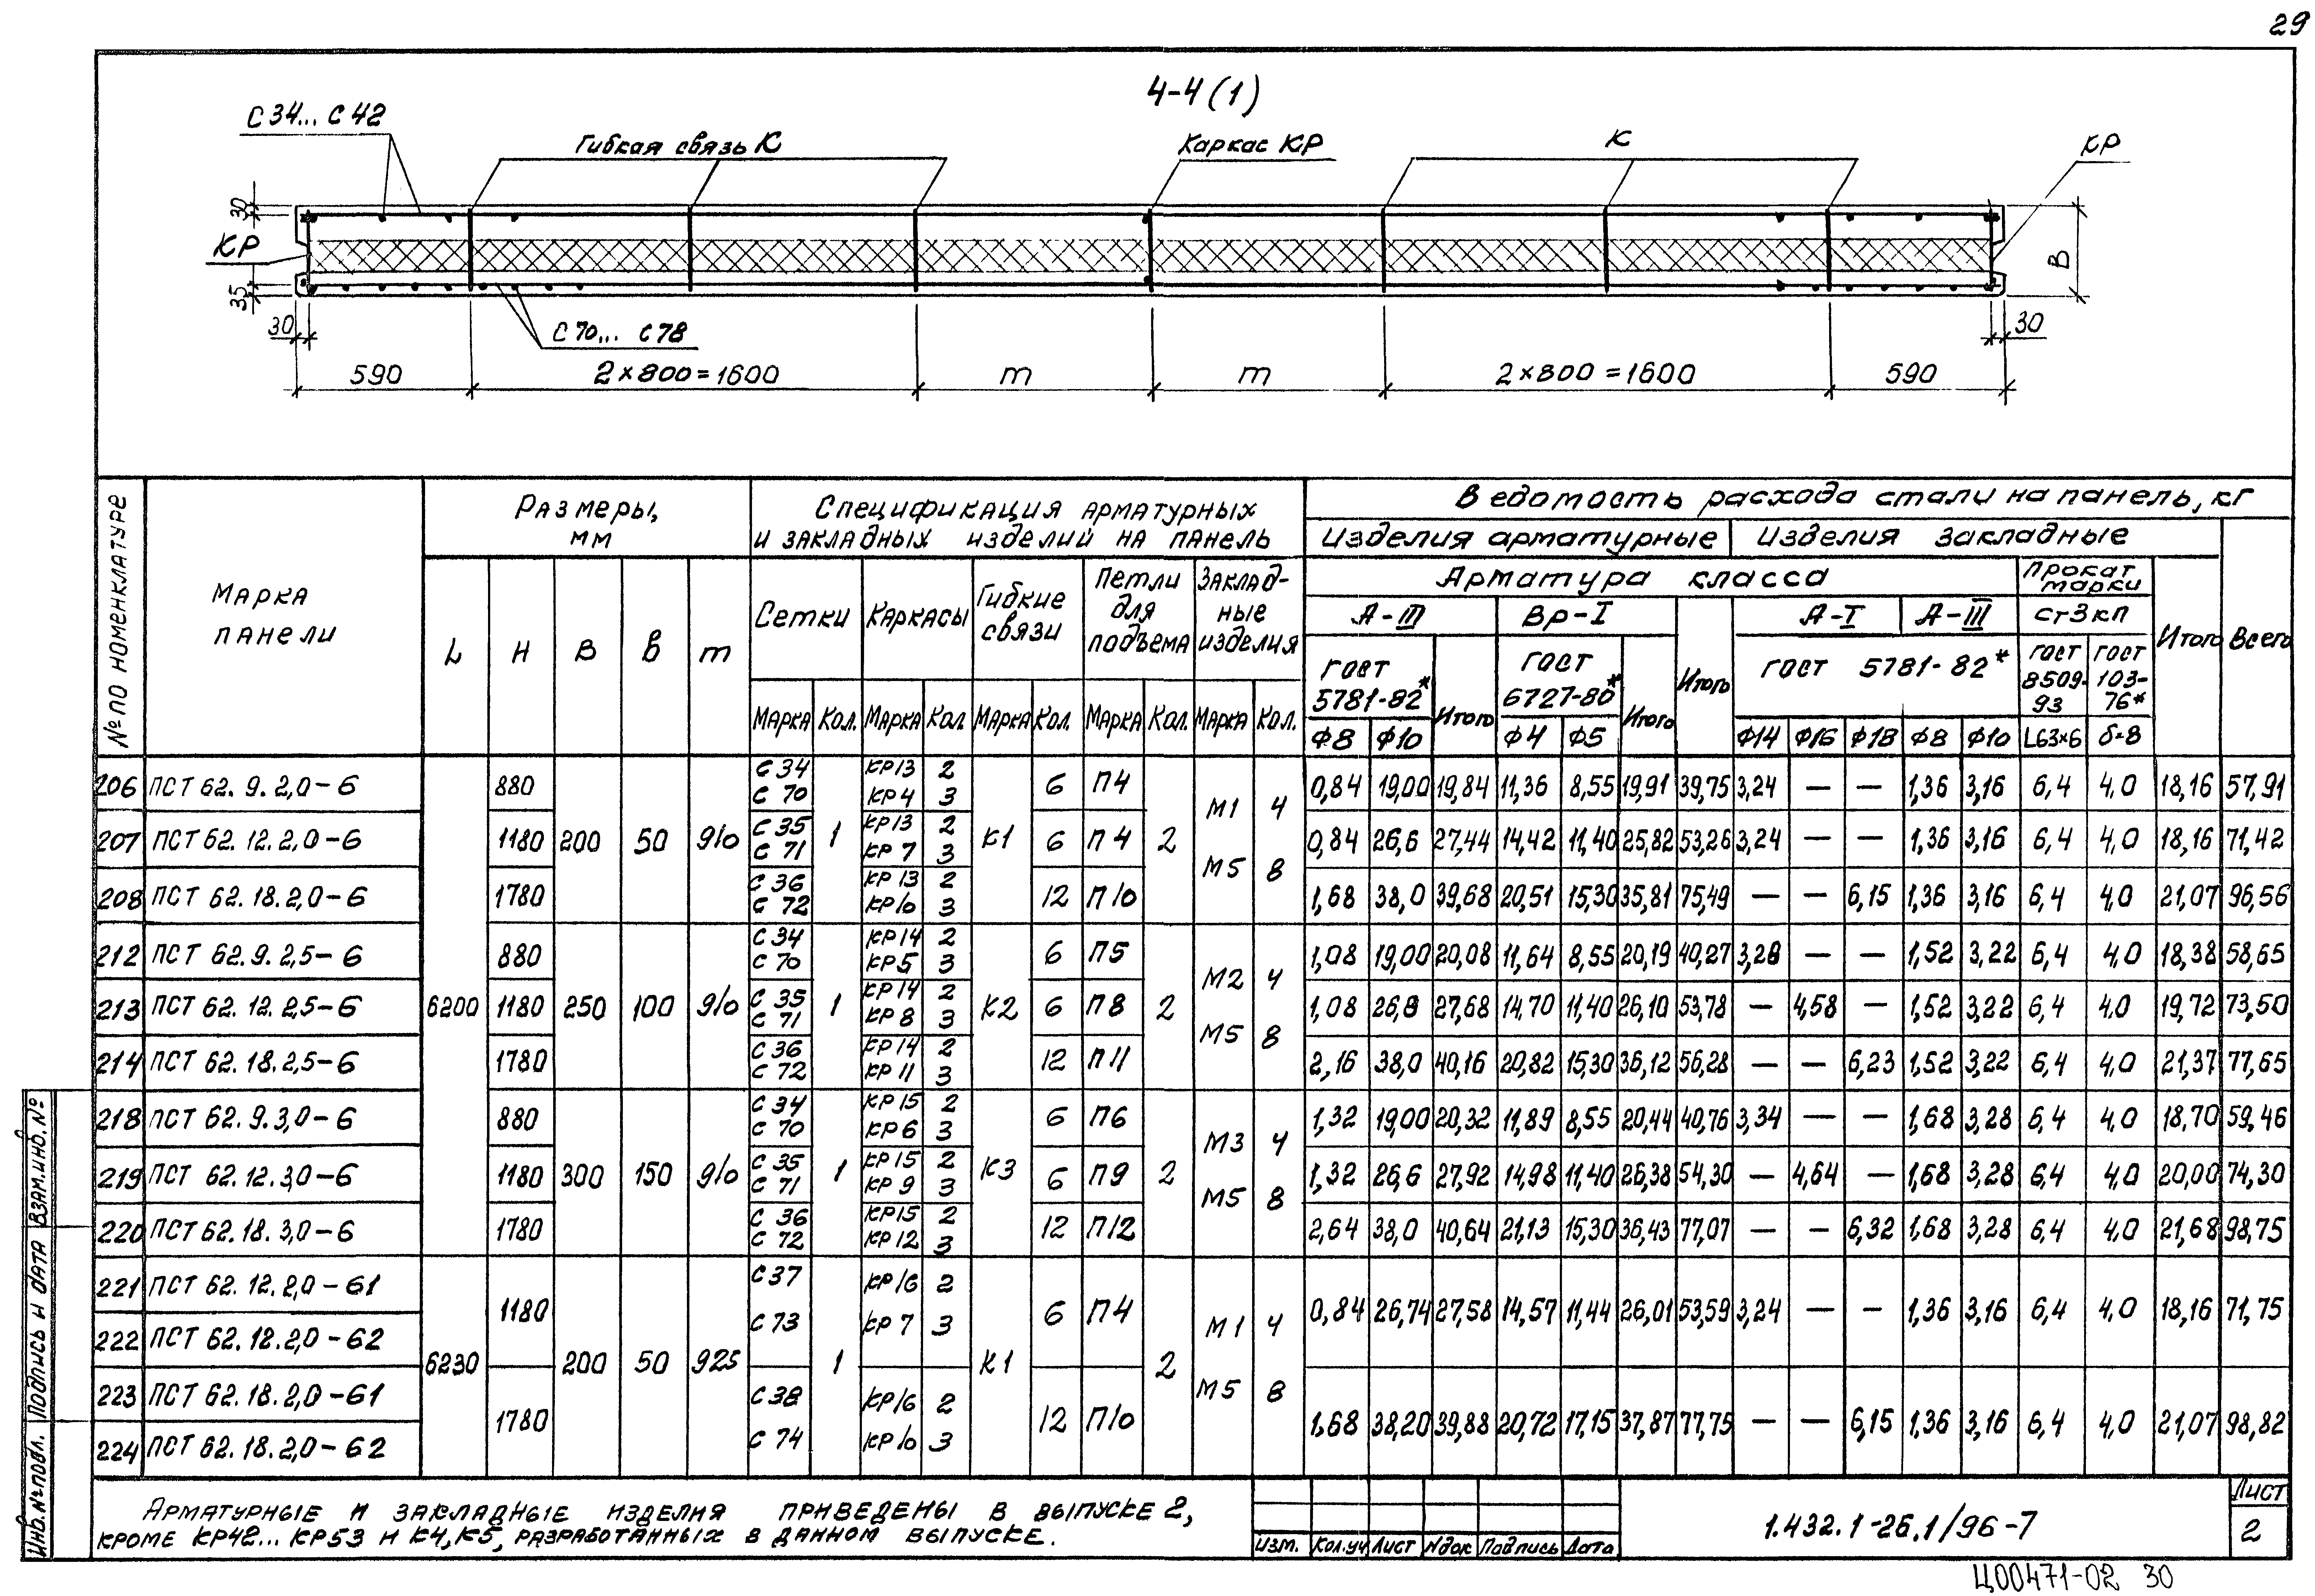 29
4-4(1)
С 34... С 42
Гибкая связь К
Каркас КР
К
КР
30
КР
35
30
С 70... С 78
В
30
590
2×800=1600
m
m
2×800=1600
590
№ по номенклатуре
Марка панели
Размеры, мм
Спецификация арматурных и закладных изделий на панель
Ведомость расхода стали на панель, кг
Изделия арматурные
Изделия закладные
Всего
Арматура класса
Прокат марки
Итого
L
H
В
в
m
Сетки
Каркасы
Гибкие связи
Петли для подъема
Закладные изделия
А-III
Вр-I
Итого
А-I
А-III
ст3кп
ГОСТ 5781-82*
Итого
ГОСТ 6727-80*
Итого
ГОСТ 5781-82*
ГОСТ 8509-93
ГОСТ 103-76*
Марка Кол. Марка Кол Марка Кол. Марка Кол. Марка Кол.
Ф8 Ф10 Ф4 Ф5 Ф14 Ф16 Ф18 Ф8 Ф10 L63×6 δ=8
206 ПСТ 62.9.2,0-6 880 С 34 С 70 КР13 2 КР4 3 6 П4 0,84 19,00 19,84 11,36 8,55 19,91 39,75 3,24 — — 1,36 3,16 6,4 4,0 18,16 57,91
207 ПСТ 62.12.2,0-6 1180 200 50 910 С 35 С 71 1 КР13 2 КР 7 3 К1 6 П4 2 М1 4 М5 8 0,84 26,6 27,44 14,42 11,40 25,82 53,26 3,24 — — 1,36 3,16 6,4 4,0 18,16 71,42
208 ПСТ 62.18.2,0-6 1780 С 36 С 72 КР 13 2 КР10 3 12 П10 1,68 38,0 39,68 20,51 15,30 35,81 75,49 — — 6,15 1,36 3,16 6,4 4,0 21,07 96,56
212 ПСТ 62.9.2,5-6 880 С 34 С 70 КР14 2 КР5 3 6 П5 1,08 19,00 20,08 11,64 8,55 20,19 40,27 3,28 — — 1,52 3,22 6,4 4,0 18,38 58,65
213 ПСТ 62.12.2,5-6 6200 1180 250 100 910 С 35 С 71 1 КР14 2 КР 8 3 К2 6 П8 2 М2 4 М5 8 1,08 26,6 27,68 14,70 11,40 26,10 53,78 — 4,58 — 1,52 3,22 6,4 4,0 19,72 73,50
214 ПСТ 62.18.2,5-6 1780 С 36 С 72 КР14 2 КР 11 3 12 П11 2,16 38,0 40,16 20,82 15,30 36,12 56,28 — — 6,23 1,52 3,22 6,4 4,0 21,37 77,65
218 ПСТ 62.9.3,0-6 880 С 34 С 70 КР15 2 КР6 3 6 П6 1,32 19,00 20,32 11,89 8,55 20,44 40,76 3,34 — — 1,68 3,28 6,4 4,0 18,70 59,46
219 ПСТ 62.12.3,0-6 1180 300 150 910 С 35 С 71 1 КР15 2 КР 9 3 К3 6 П9 2 М3 4 М5 8 1,32 26,6 27,92 14,98 11,40 26,38 54,30 — 4,64 — 1,68 3,28 6,4 4,0 20,00 74,30
220 ПСТ 62.18.3,0-6 1780 С 36 С 72 КР15 2 КР 12 3 12 П12 2,64 38,0 40,64 21,13 15,30 36,43 77,07 — — 6,32 1,68 3,28 6,4 4,0 21,68 98,75
221 ПСТ 62.12.2,0-61
222 ПСТ 62.12.2,0-62
1180 С 37 С 73 КР16 2 КР 7 3 6 П4 0,84 26,74 27,58 14,57 11,44 26,01 53,59 3,24 — — 1,36 3,16 6,4 4,0 18,16 71,75
6230 200 50 925 1 К1 2 М1 4 М5 8
223 ПСТ 62.18.2,0-61
224 ПСТ 62.18.2,0-62
1780 С 38 С 74 КР16 2 КР10 3 12 П10 1,68 38,20 39,88 20,72 17,15 37,87 77,75 — — 6,15 1,36 3,16 6,4 4,0 21,07 98,82
Арматурные и закладные изделия приведены в выпуске 2,
кроме КР42... КР53 и К4, К5, разработанных в данном выпуске.
Изм. Кол.уч Лист Nдок Подпись Дата
1.432.1-26.1/96-7
Лист
2
Инв.№подл. Подпись и дата Взам.инв.№
Ц00471-02 30